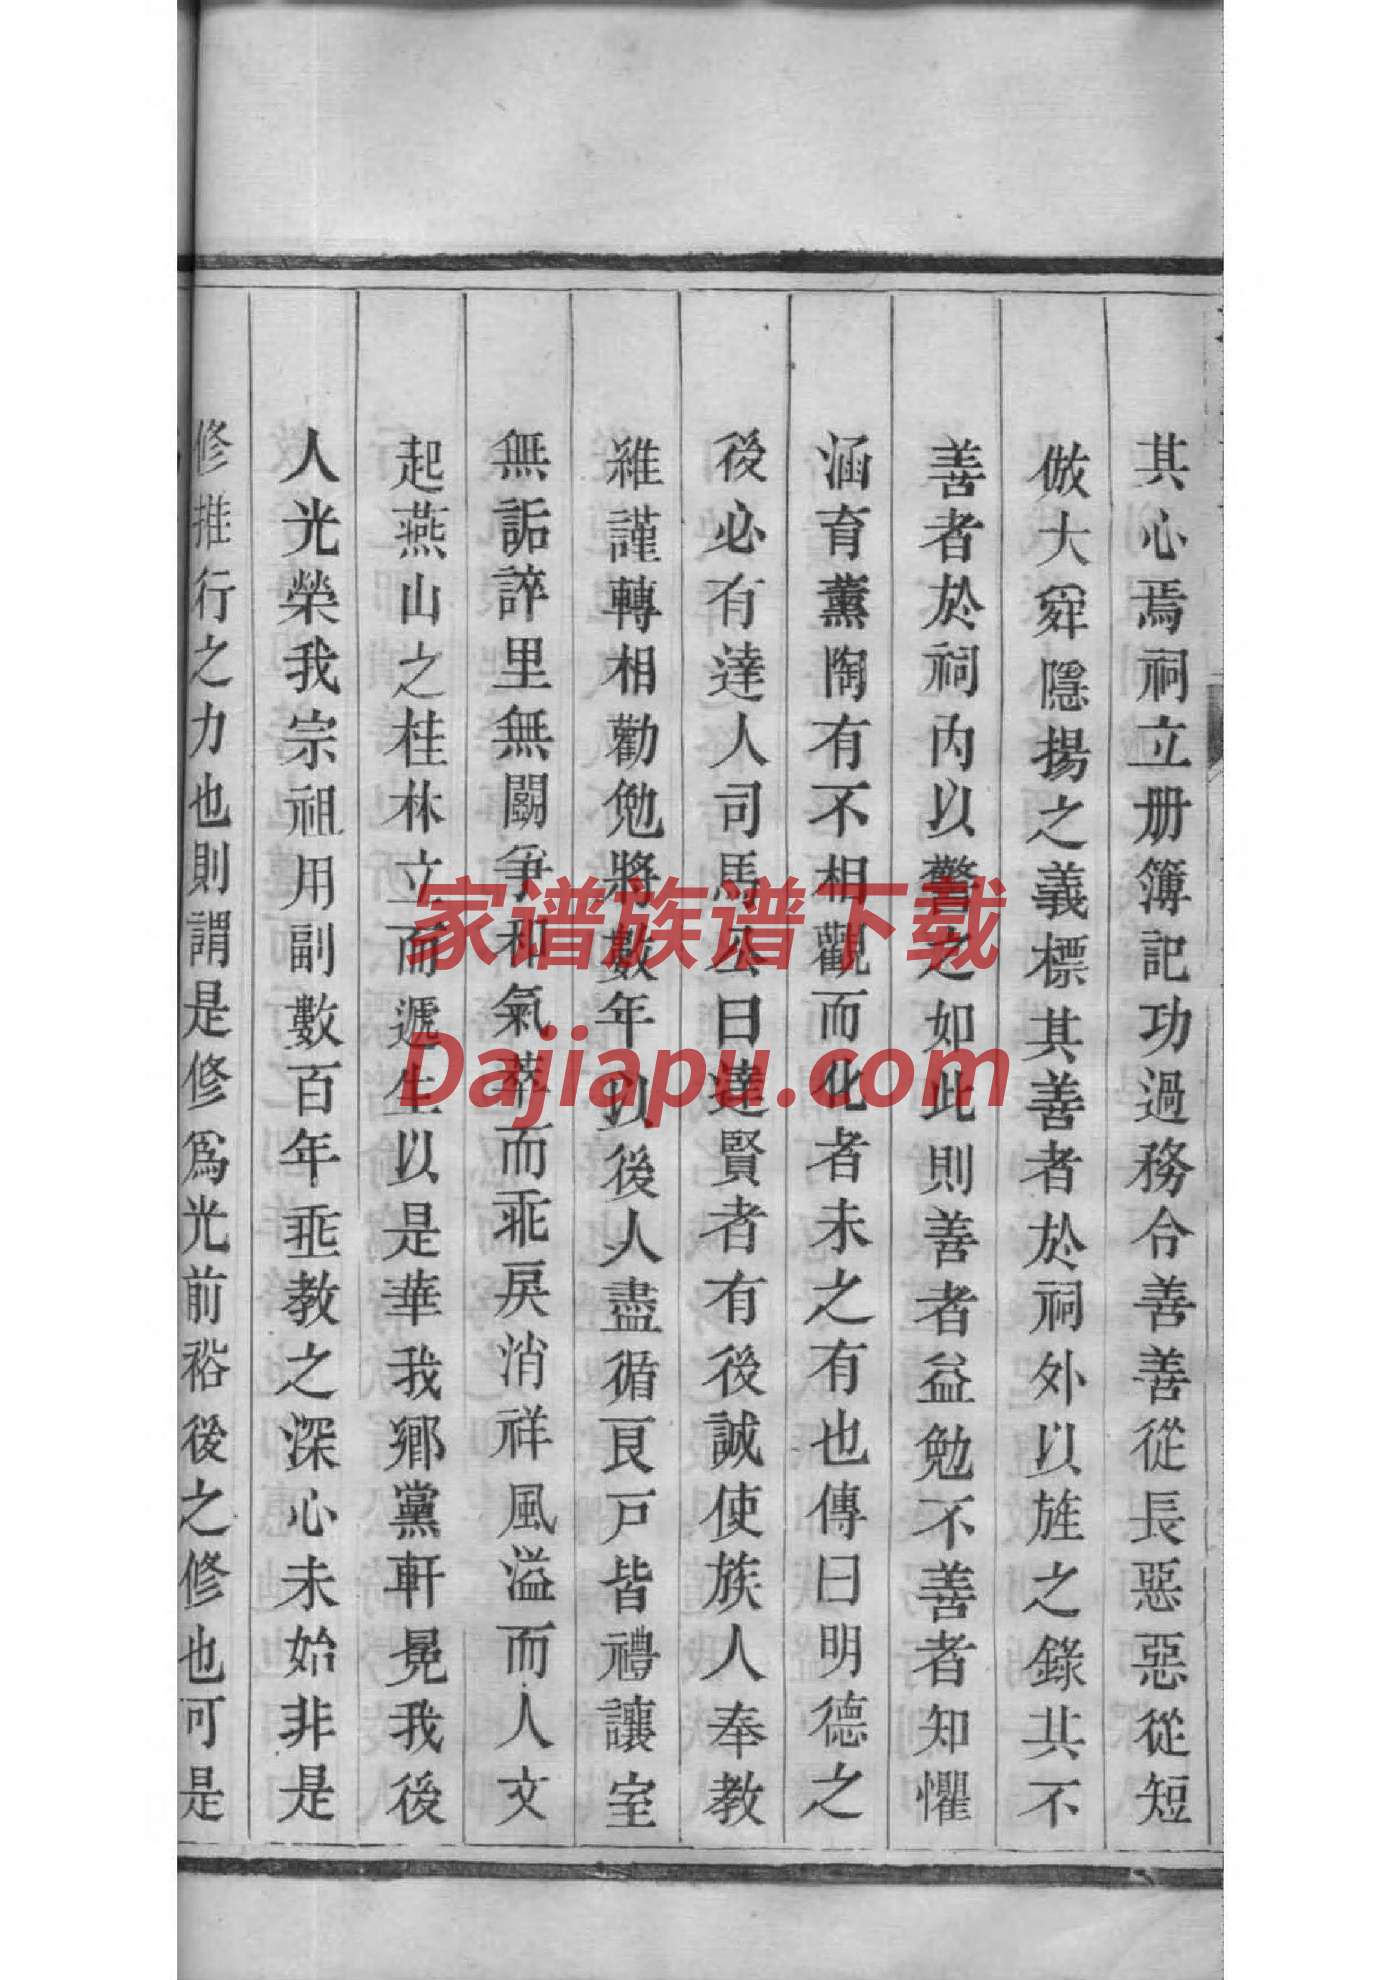 其心焉祠立册簿記功過務合善善從長惡惡從短
倣大舜隱揚之義標其善者於祠外以旌之錄其不
善者於祠內以警之如此則善者益勉不善者知懼
涵育薰陶有不相觀而化者未之有也傳曰明德之
後必有達人司馬公曰達賢者有後誠使族人奉教
維謹轉相勸勉將數年以後人盡循良戶皆禮讓室
無詬誶里無鬬爭和氣萃而乖戾消祥風溢而人文
起燕山之桂林立而遞生以是華我鄉黨軒冕我後
人光榮我宗祖用副數百年垂教之深心未始非是
修推行之力也則謂是修爲光前裕後之修也可是
家谱族谱下载
Dajiapu.com